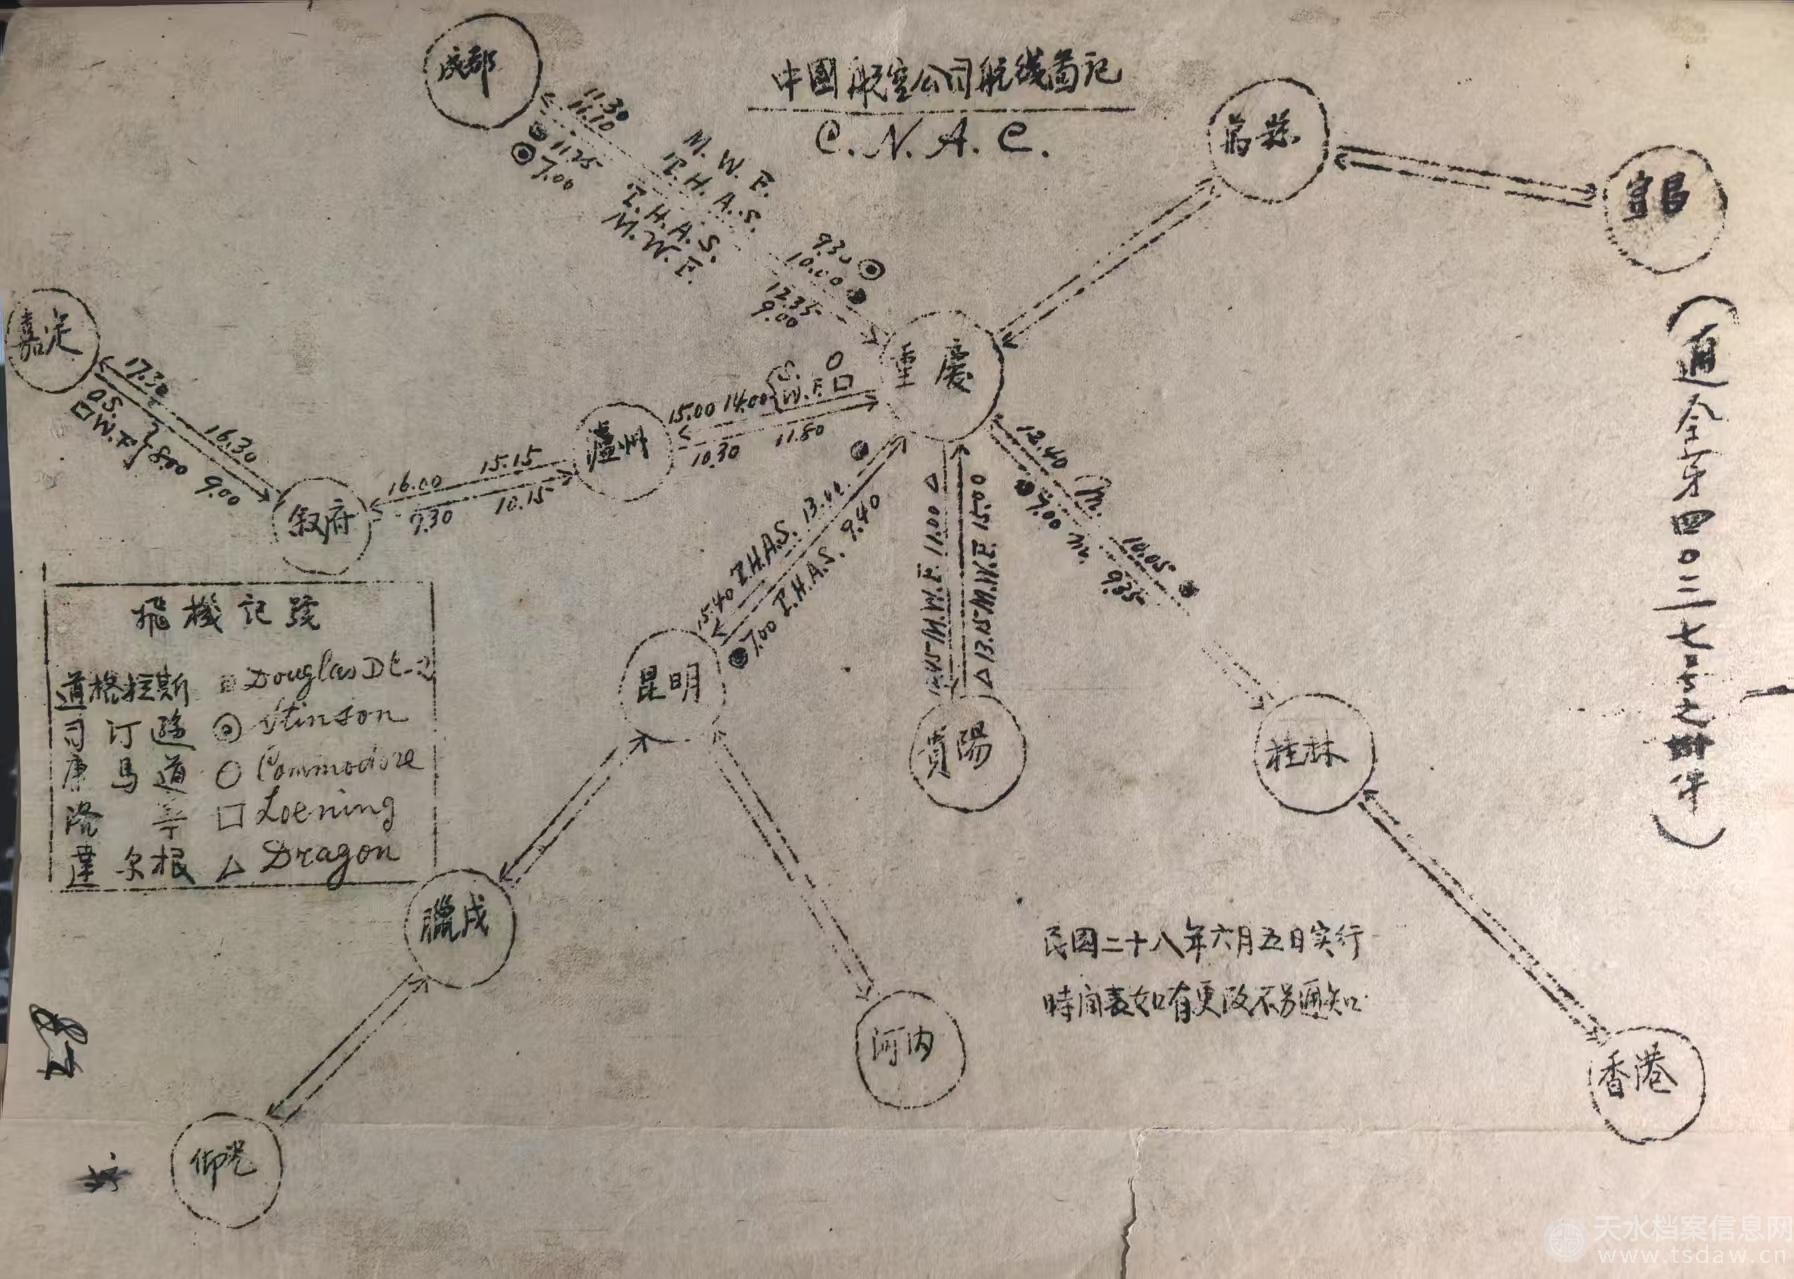 中國航空公司航线畣记
C.N.A.C.
成都
11.30
11.10
11.25
7.00
M.W.F.
T.H.A.S.
T.H.A.S.
M.W.F.
9.30
10.00
12.35
9.00
萬縣
宜昌
嘉定
17.30
16.30
O S.
□ W.F. } 8.00
9.00
叙府
16.00 15.15
7.30 10.15
瀘州
15.00 14.00 { S. O
W.F. □
10.30
重慶
15.40 T.H.A.S. 13.00
7.00 T.H.A.S. 9.40
昆明
M.W.F. 11.00 △
△ 13.15 M.W.F. 15.00
貴陽
12.40 M. 10.05
7.00 9.35
桂林
飛機記號
道格拉斯 Douglas DC-2
司汀遜 ◎ Stinson
康馬道 O Commodore
洛寧 □ Loening
達尔根 △ Dragon
臘戌
河内
仰光
香港
民国二十八年六月五日实行
時间表如有更改不另通知
(通令字四〇三二七号之附件)
天水档案信息网
www.tsdaw.cn